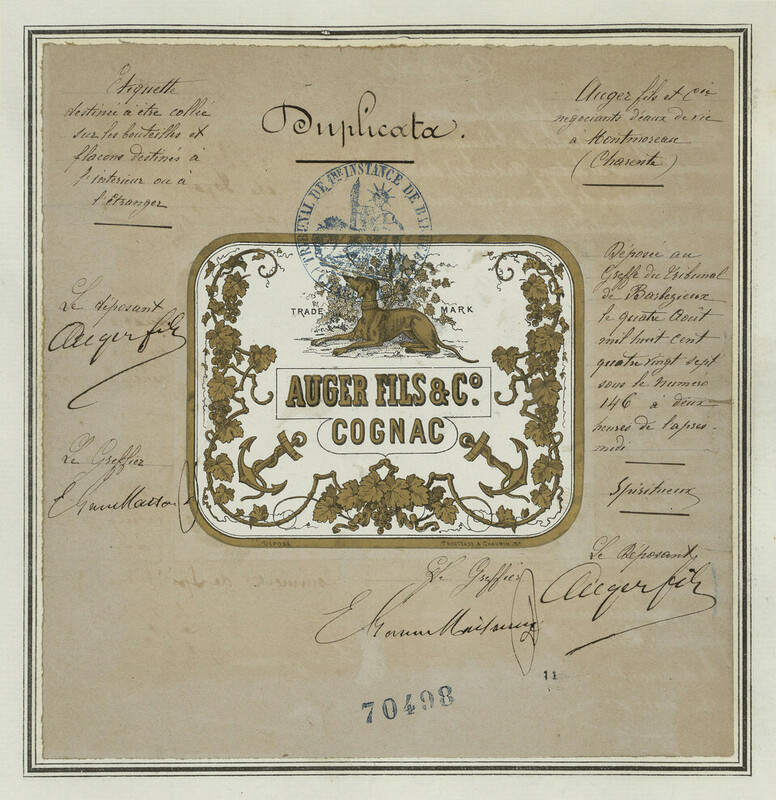 Duplicata.
Etiquette
destinée à être collée
sur les bouteilles et
flacons destinés à
l'interieur ou à
l'étranger
Auger fils et Cie
negociants d'eaux de vie
à Montmoreau
(Charente)
TRIBUNAL DE 1RE INSTANCE DE
TRADE MARK
AUGER FILS & Co
COGNAC
DÉPOSÉ
Le déposant
Auger fils
Le Greffier
Déposée au
Greffe du Tribunal
de Barbezieux
le quatre Août
mil huit cent
quatre vingt sept
sous le numero
146 à deux
heures de l'apres-
midi
Spiritueux
Le Déposant
Auger fils
Le Greffier
11
70498